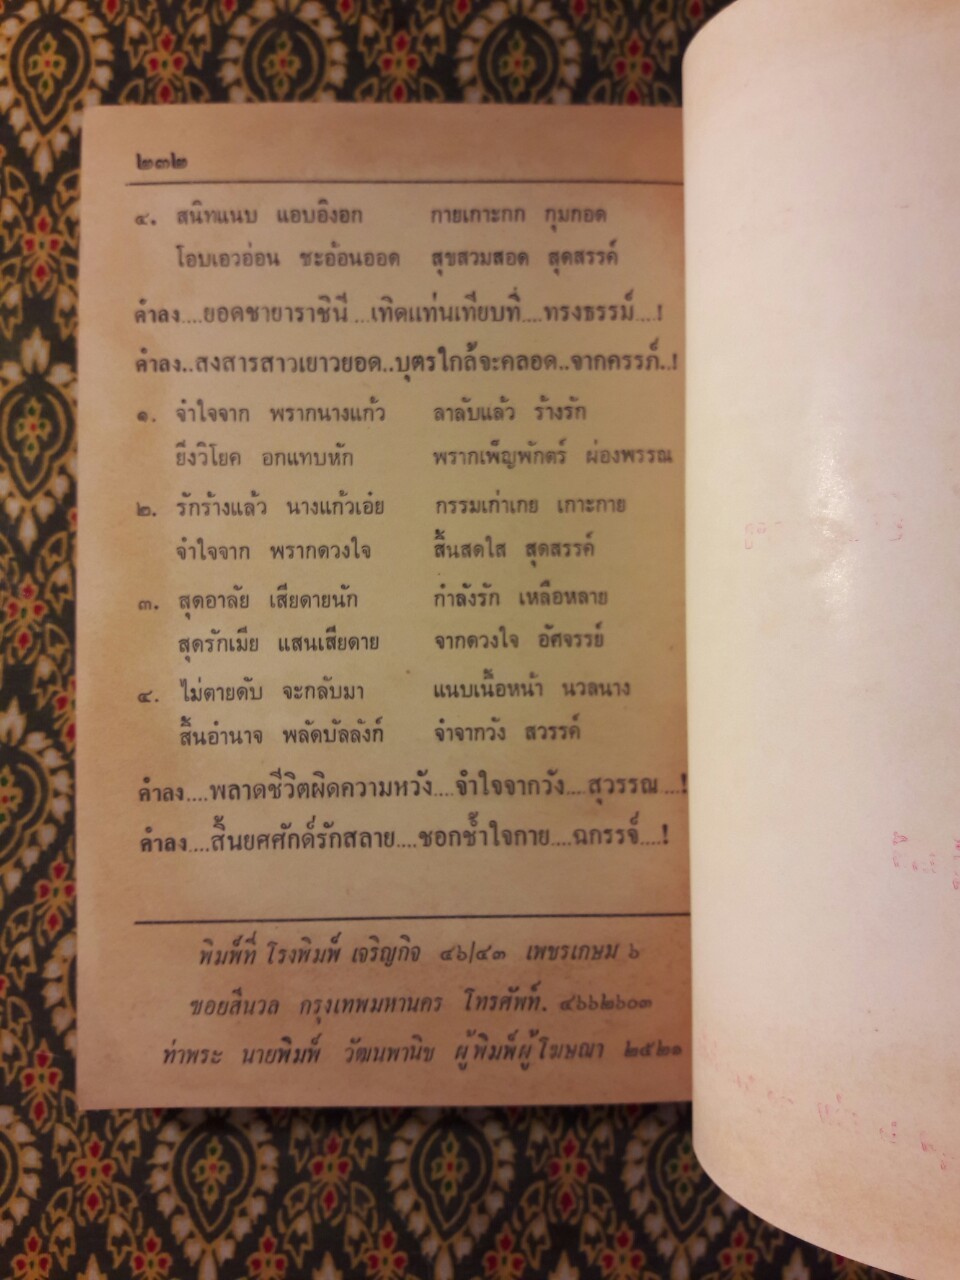 ๒๓๒
๔. สนิทแนบ แอบอิงอก กายเกาะกก กุมกอด
โอบเอวอ่อน ชะอ้อนออด สุขสวมสอด สุดสรรค์
คำลง....ยอดชายาราชินี...เทิดแท่นเทียบที่....ทรงธรรม์....!
คำลง..สงสารสาวเยาวยอด..บุตรใกล้จะคลอด..จากครรภ์..!
๑. จำใจจาก พรากนางแก้ว ลาลับแล้ว ร้างรัก
ยิ่งวิโยค อกแทบหัก พรากเพ็ญพักตร์ ผ่องพรรณ
๒. รักร้างแล้ว นางแก้วเอ๋ย กรรมเก่าเกย เกาะกาย
จำใจจาก พรากดวงใจ สิ้นสดใส สุดสรรค์
๓. สุดอาลัย เสียดายนัก กำลังรัก เหลือหลาย
สุดรักเมีย แสนเสียดาย จากดวงใจ อัศจรรย์
๔. ไม่ตายดับ จะกลับมา แนบเนื้อหน้า นวลนาง
สิ้นอำนาจ พลัดบัลลังก์ จำจากวัง สวรรค์
คำลง....พลาดชีวิตผิดความหวัง....จำใจจากวัง....สุวรรณ....!
คำลง....สิ้นยศศักด์รักสลาย....ชอกช้ำใจกาย....ฉกรรจ์....!
พิมพ์ที่ โรงพิมพ์ เจริญกิจ ๔๖/๔๓ เพชรเกษม ๖
ซอยสีนวล กรุงเทพมหานคร โทรศัพท์. ๔๖๖๒๖๐๓
ท่าพระ นายพิมพ์ วัฒนพานิช ผู้พิมพ์ผู้โฆษณา ๒๕๒๑